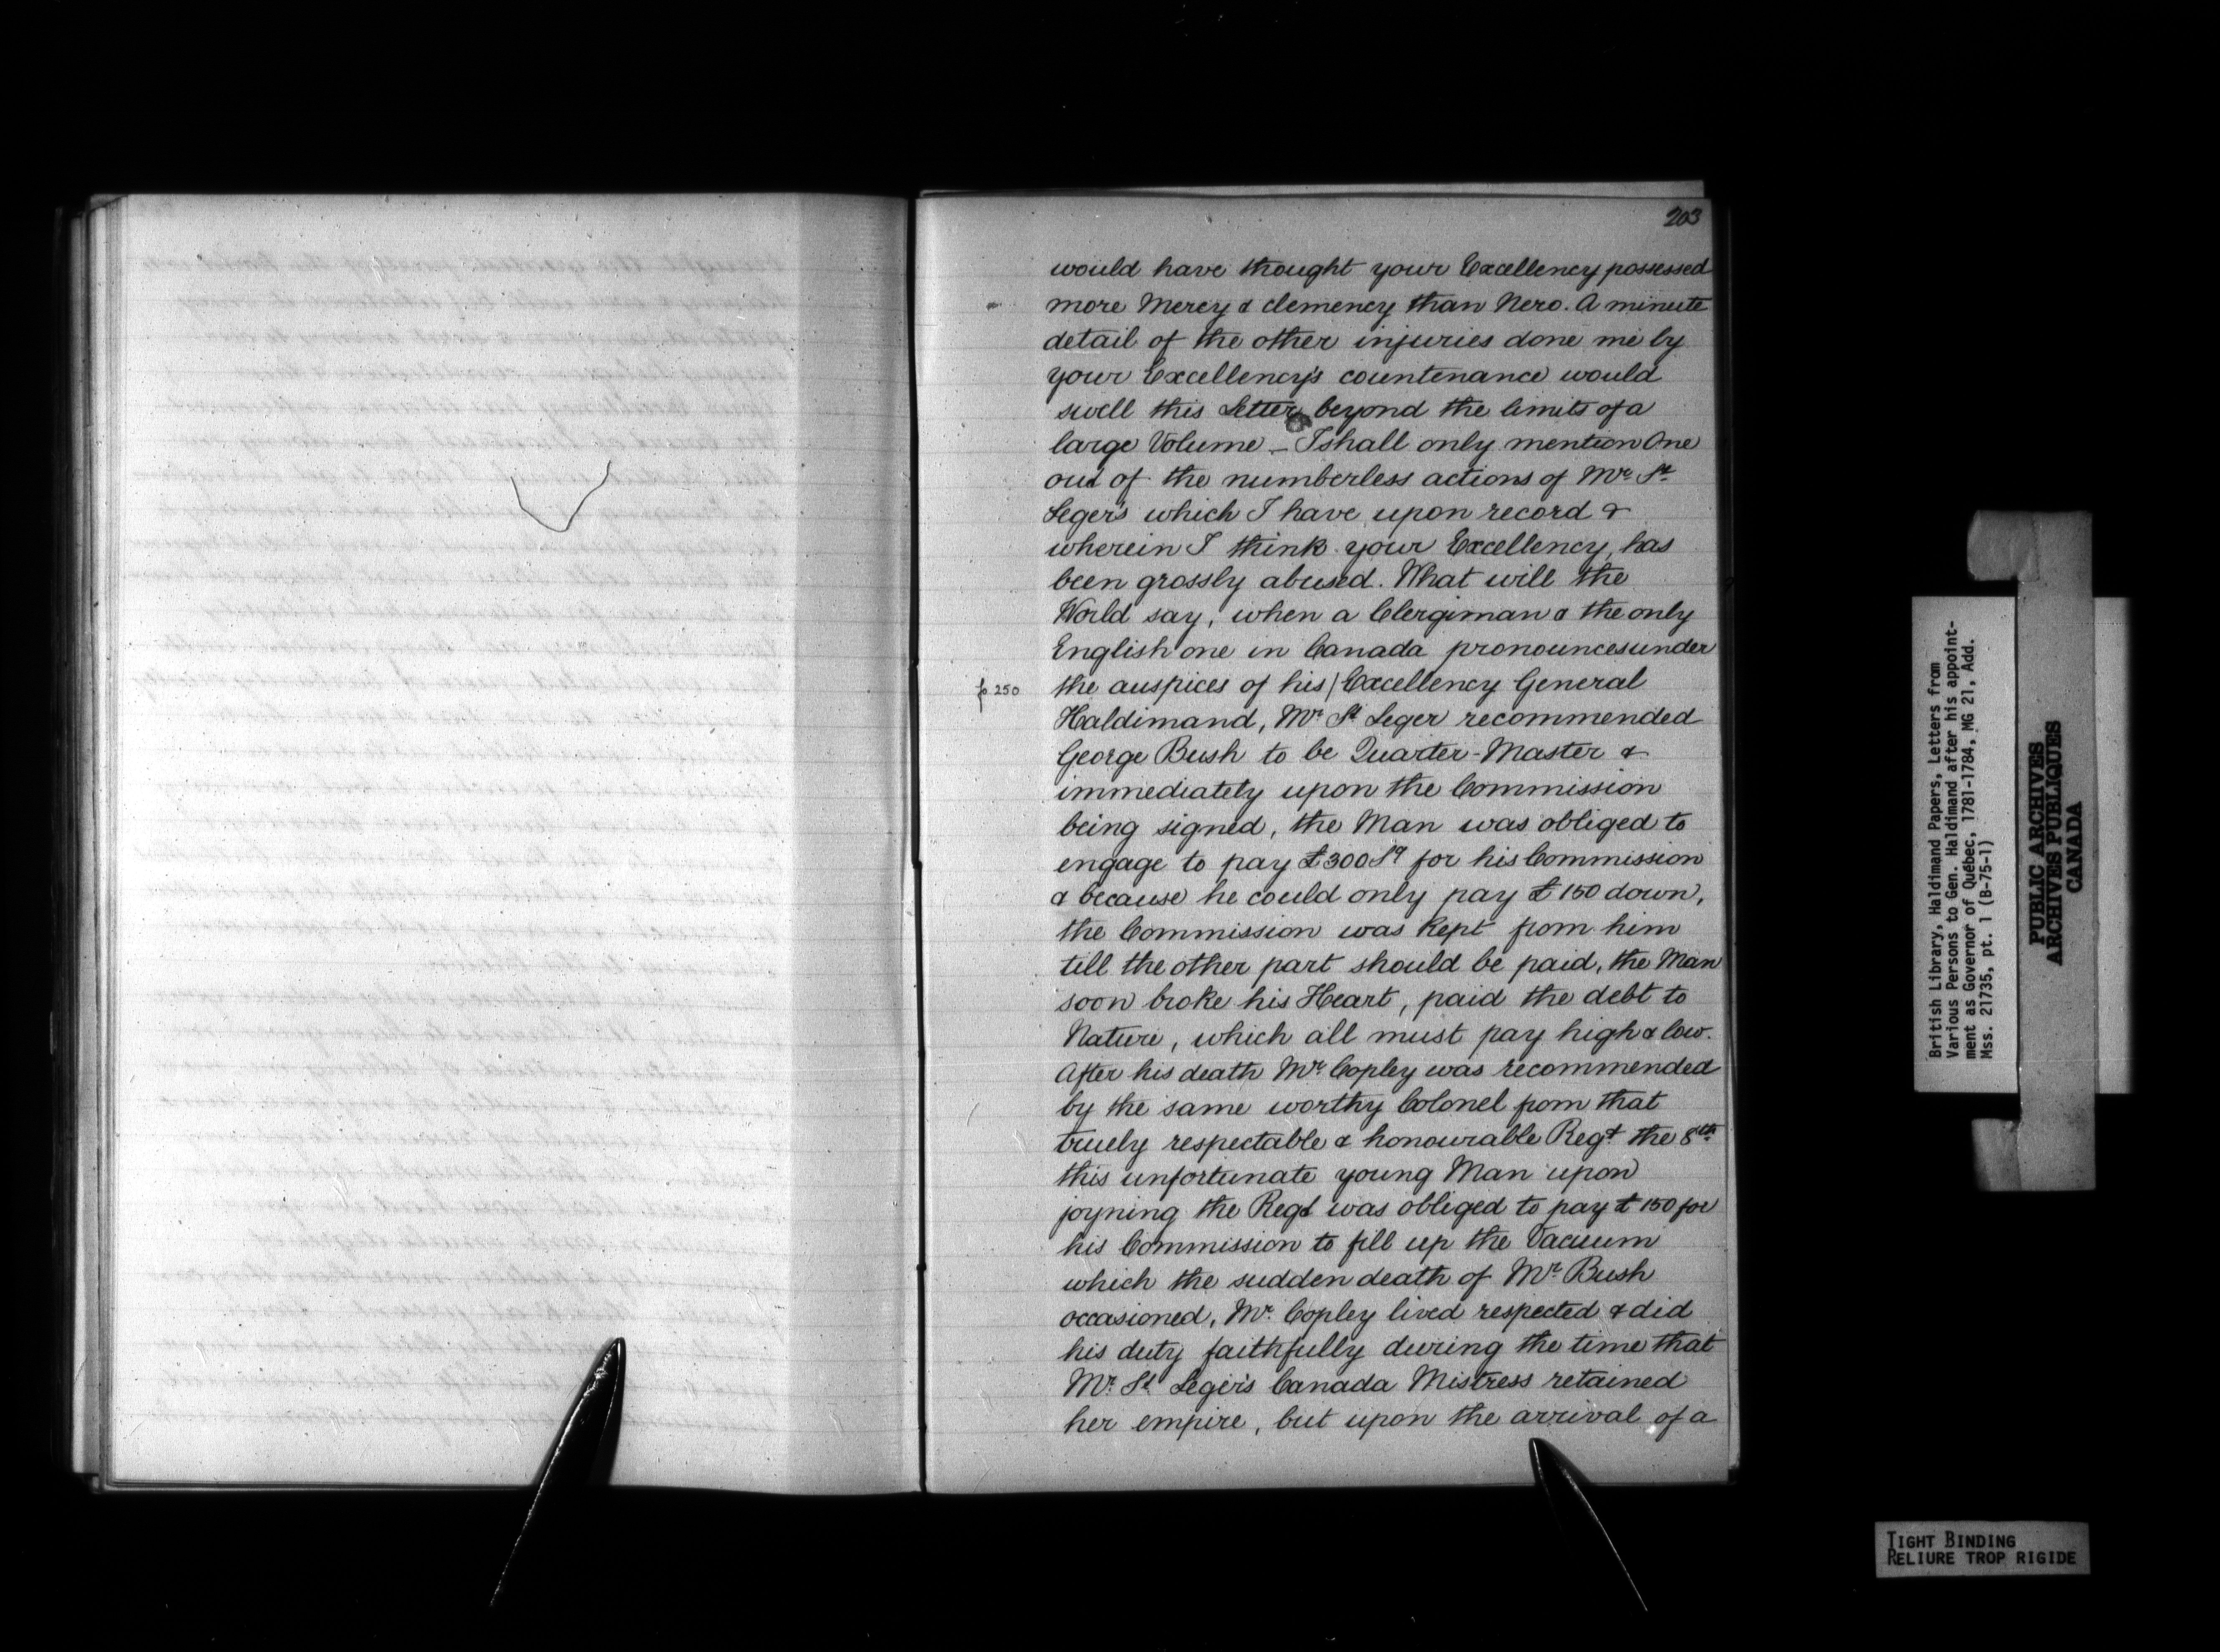 203
would have thought your Excellency possessed
more Mercy & clemency than Nero. A minute
detail of the other injuries done me by
your Excellency's countenance would
swell this Letter beyond the limits of a
large Volume _ I shall only mention One
out of the numberless actions of Mr. St.
Leger's which I have upon record &
wherein I think your Excellency, has
been grossly abused. What will the
World say, when a Clergiman & the only
English one in Canada pronounces under
fo. 250 the auspices of his / Excellency General
Haldimand, Mr. St. Leger recommended
George Bush to be Quarter-Master &
immediately upon the Commission
being signed, the Man was obliged to
engage to pay £300 Sg for his Commission
& because he could only pay £150 down,
the Commission was kept from him
till the other part should be paid, the Man
soon broke his Heart, paid the debt to
Nature, which all must pay high & low.
After his death Mr. Copley was recommended
by the same worthy Colonel from that
truely respectable & honourable Regt. the 8th.
this unfortunate young Man upon
joyning the Regt was obliged to pay £150 for
his Commission to fill up the Vacuum
which the sudden death of Mr. Bush
occasioned, Mr. Copley lived respected & did
his duty faithfully during the time that
Mr. St. Leger's Canada Mistress retained
her empire, but upon the arrival of a
British Library, Haldimand Papers, Letters from
Various Persons to Gen. Haldimand after his appoint-
ment as Governor of Québec, 1781-1784, MG 21, Add.
Mss. 21735, pt. 1 (B-75-1)
PUBLIC ARCHIVES
ARCHIVES PUBLIQUES
CANADA
TIGHT BINDING
RELIURE TROP RIGIDE